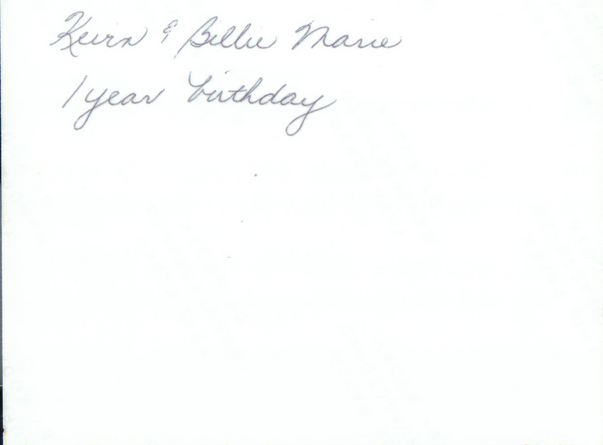 Keirn & Billie Marie
1 year birthday